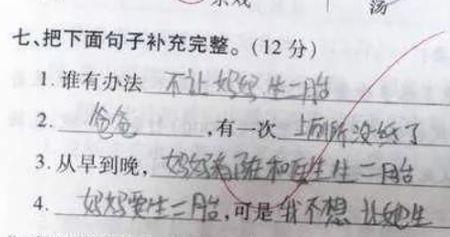 七、把下面句子补充完整。(12分)
1. 谁有办法 不让妈妈生二胎
2. 爸爸,有一次 上厕所没纸了
3. 从早到晚,妈妈都在和医生生二胎
4. 妈妈要生二胎,可是我不想让她生